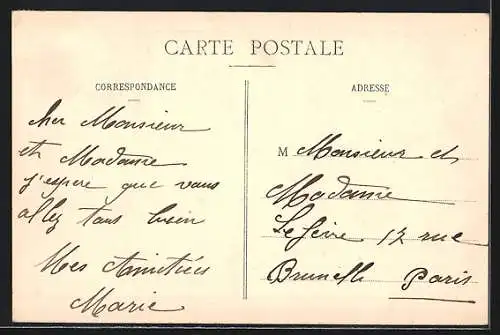 CARTE POSTALE
CORRESPONDANCE
Cher Monsieur
et Madame
j'espere que vous
allez tous bien
Mes Amitiées
Marie
ADRESSE
M Monsieur et
Madame
Lefèvre 12 rue
Brunelle Paris